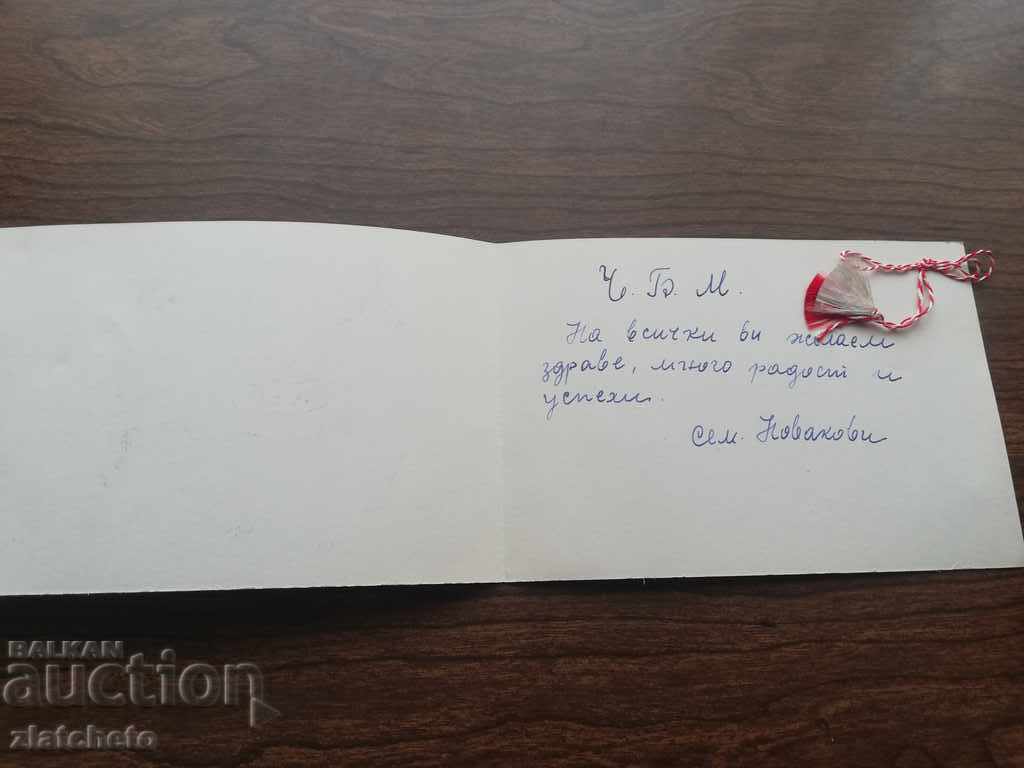 Ч. Б. М.
На всички ви желаем
здраве, много радост и
успехи.
сем. Новакови
BALKAN
auction
zlatcheto